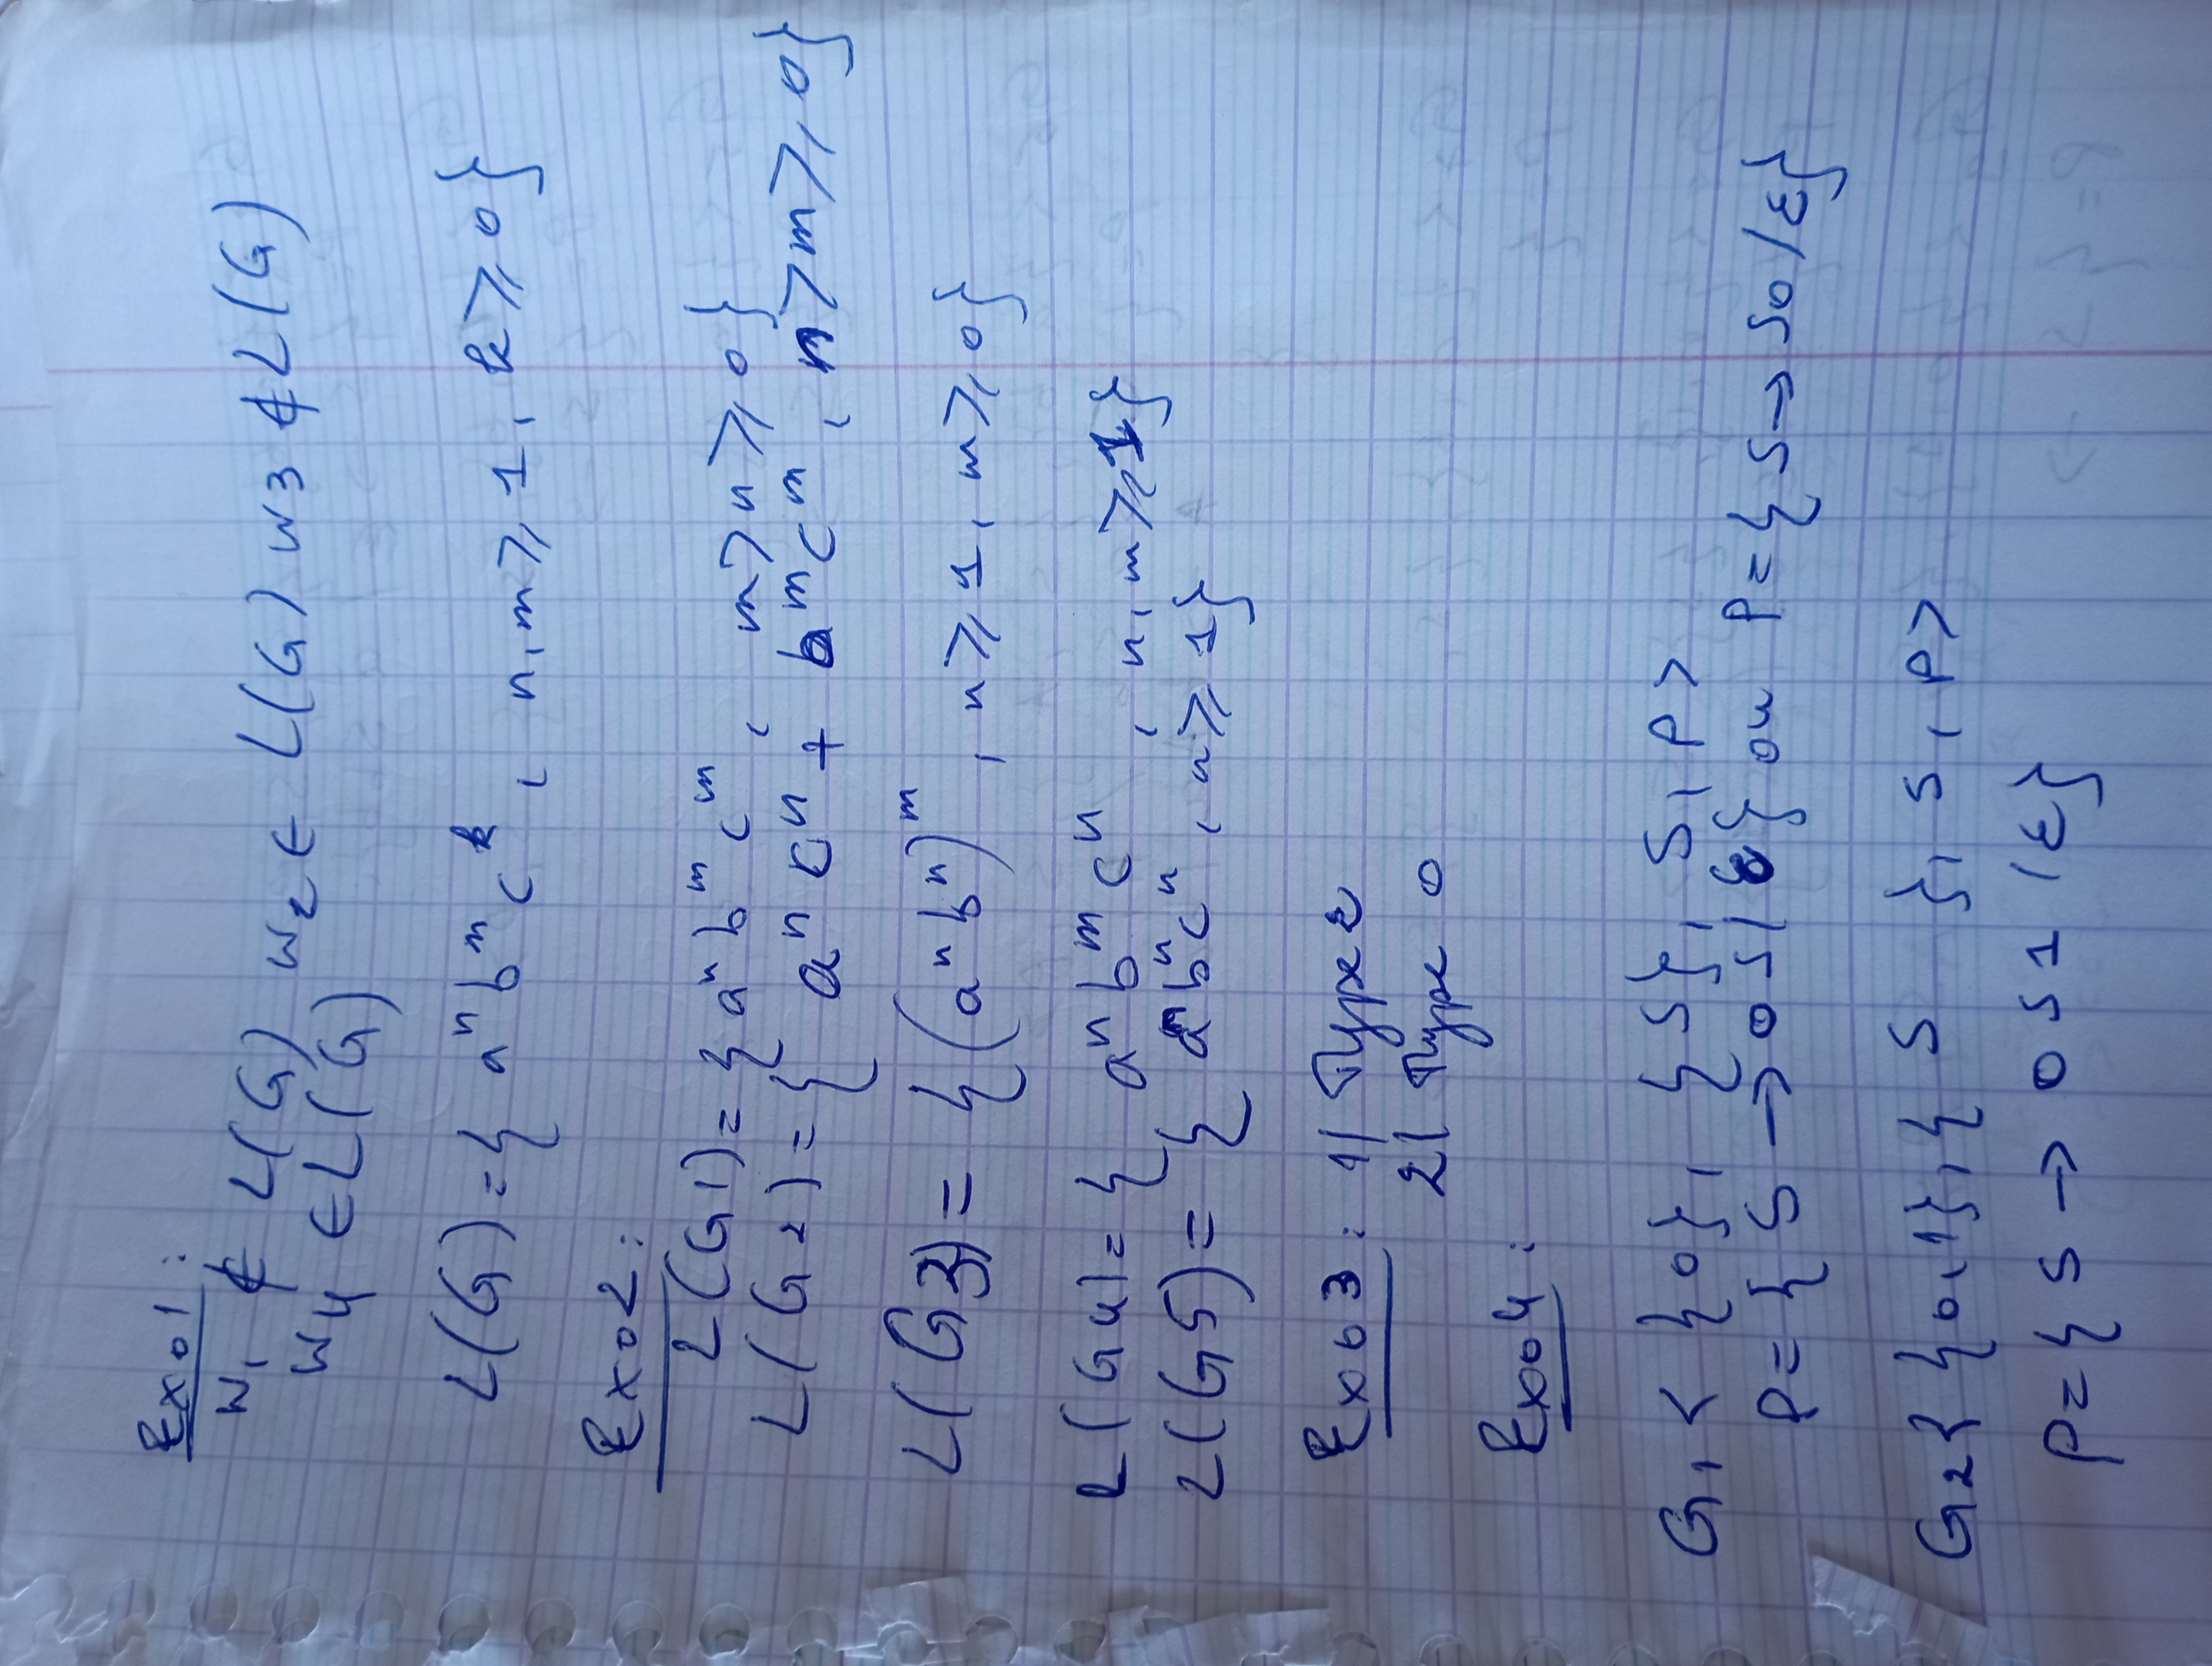 Exo1:
w₁ ∉ L(G) w₂ ∈ L(G) w3 ∉ L(G)
w4 ∈ L(G)
L(G) = { aⁿ bᵐ cᵏ , n,m ⩾ 1, k ⩾ 0}
Exo2:
L(G1) = { aⁿ bᵐ cᵐ , m > n ⩾ 0}
L(G2) = { aⁿ cⁿ + bᵐ cᵐ , n > m ⩾ 0}
L(G3) = { (aⁿ bⁿ)ᵐ , n ⩾ 1, m ⩾ 0}
L(G4) = { aⁿ bᵐ cⁿ , n, m ⩾ 1}
L(G5) = { aⁿ bⁿ cⁿ , n ⩾ 1}
Exo3: 1/ Type
2/ Type 0
Exo4:
G₁ < {0}, {S}, S, P>
P = { S → 0S/ε} ou P = { S → S0/ε}
G₂ { {0,1}, { S }, S, P>
P = { S → 0S1 /ε}